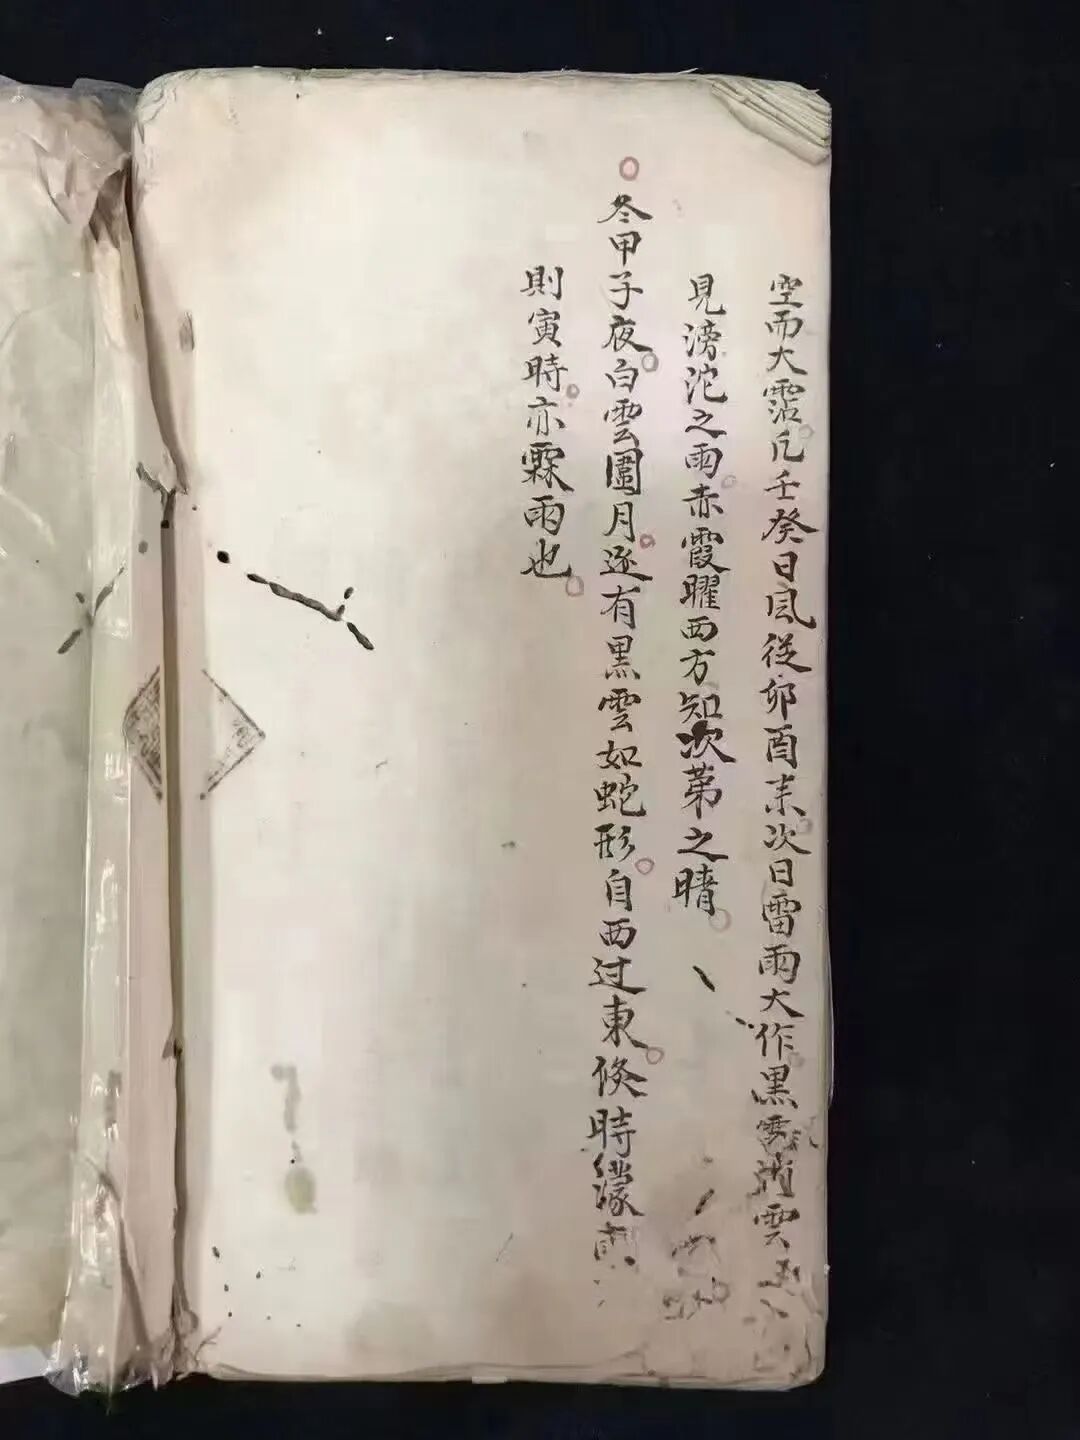 空而大霑凡壬癸日风從卯酉来次日雷雨大作黑雲消雲
見滂沱之雨赤霞曜西方知次第之晴
冬甲子夜白雲圍月逐有黒雲如蛇形自西过東倏時濛
則寅時亦霖雨也